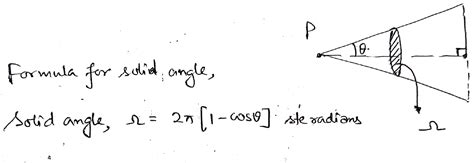 P
θ
Formula for solid angle,
Solid angle, Ω = 2π [1-cosθ] steradians
Ω